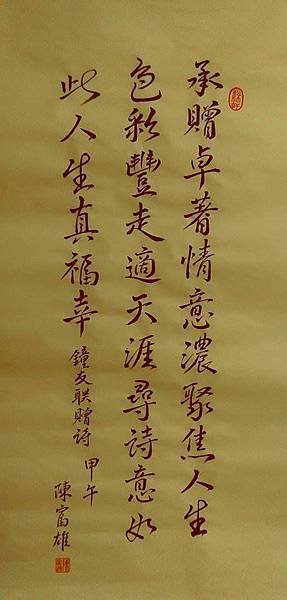 承贈卓著情意濃聚焦人生
色彩豐走適天涯尋詩意如
此人生真福幸
鐘友联贈詩 甲午
陳富雄